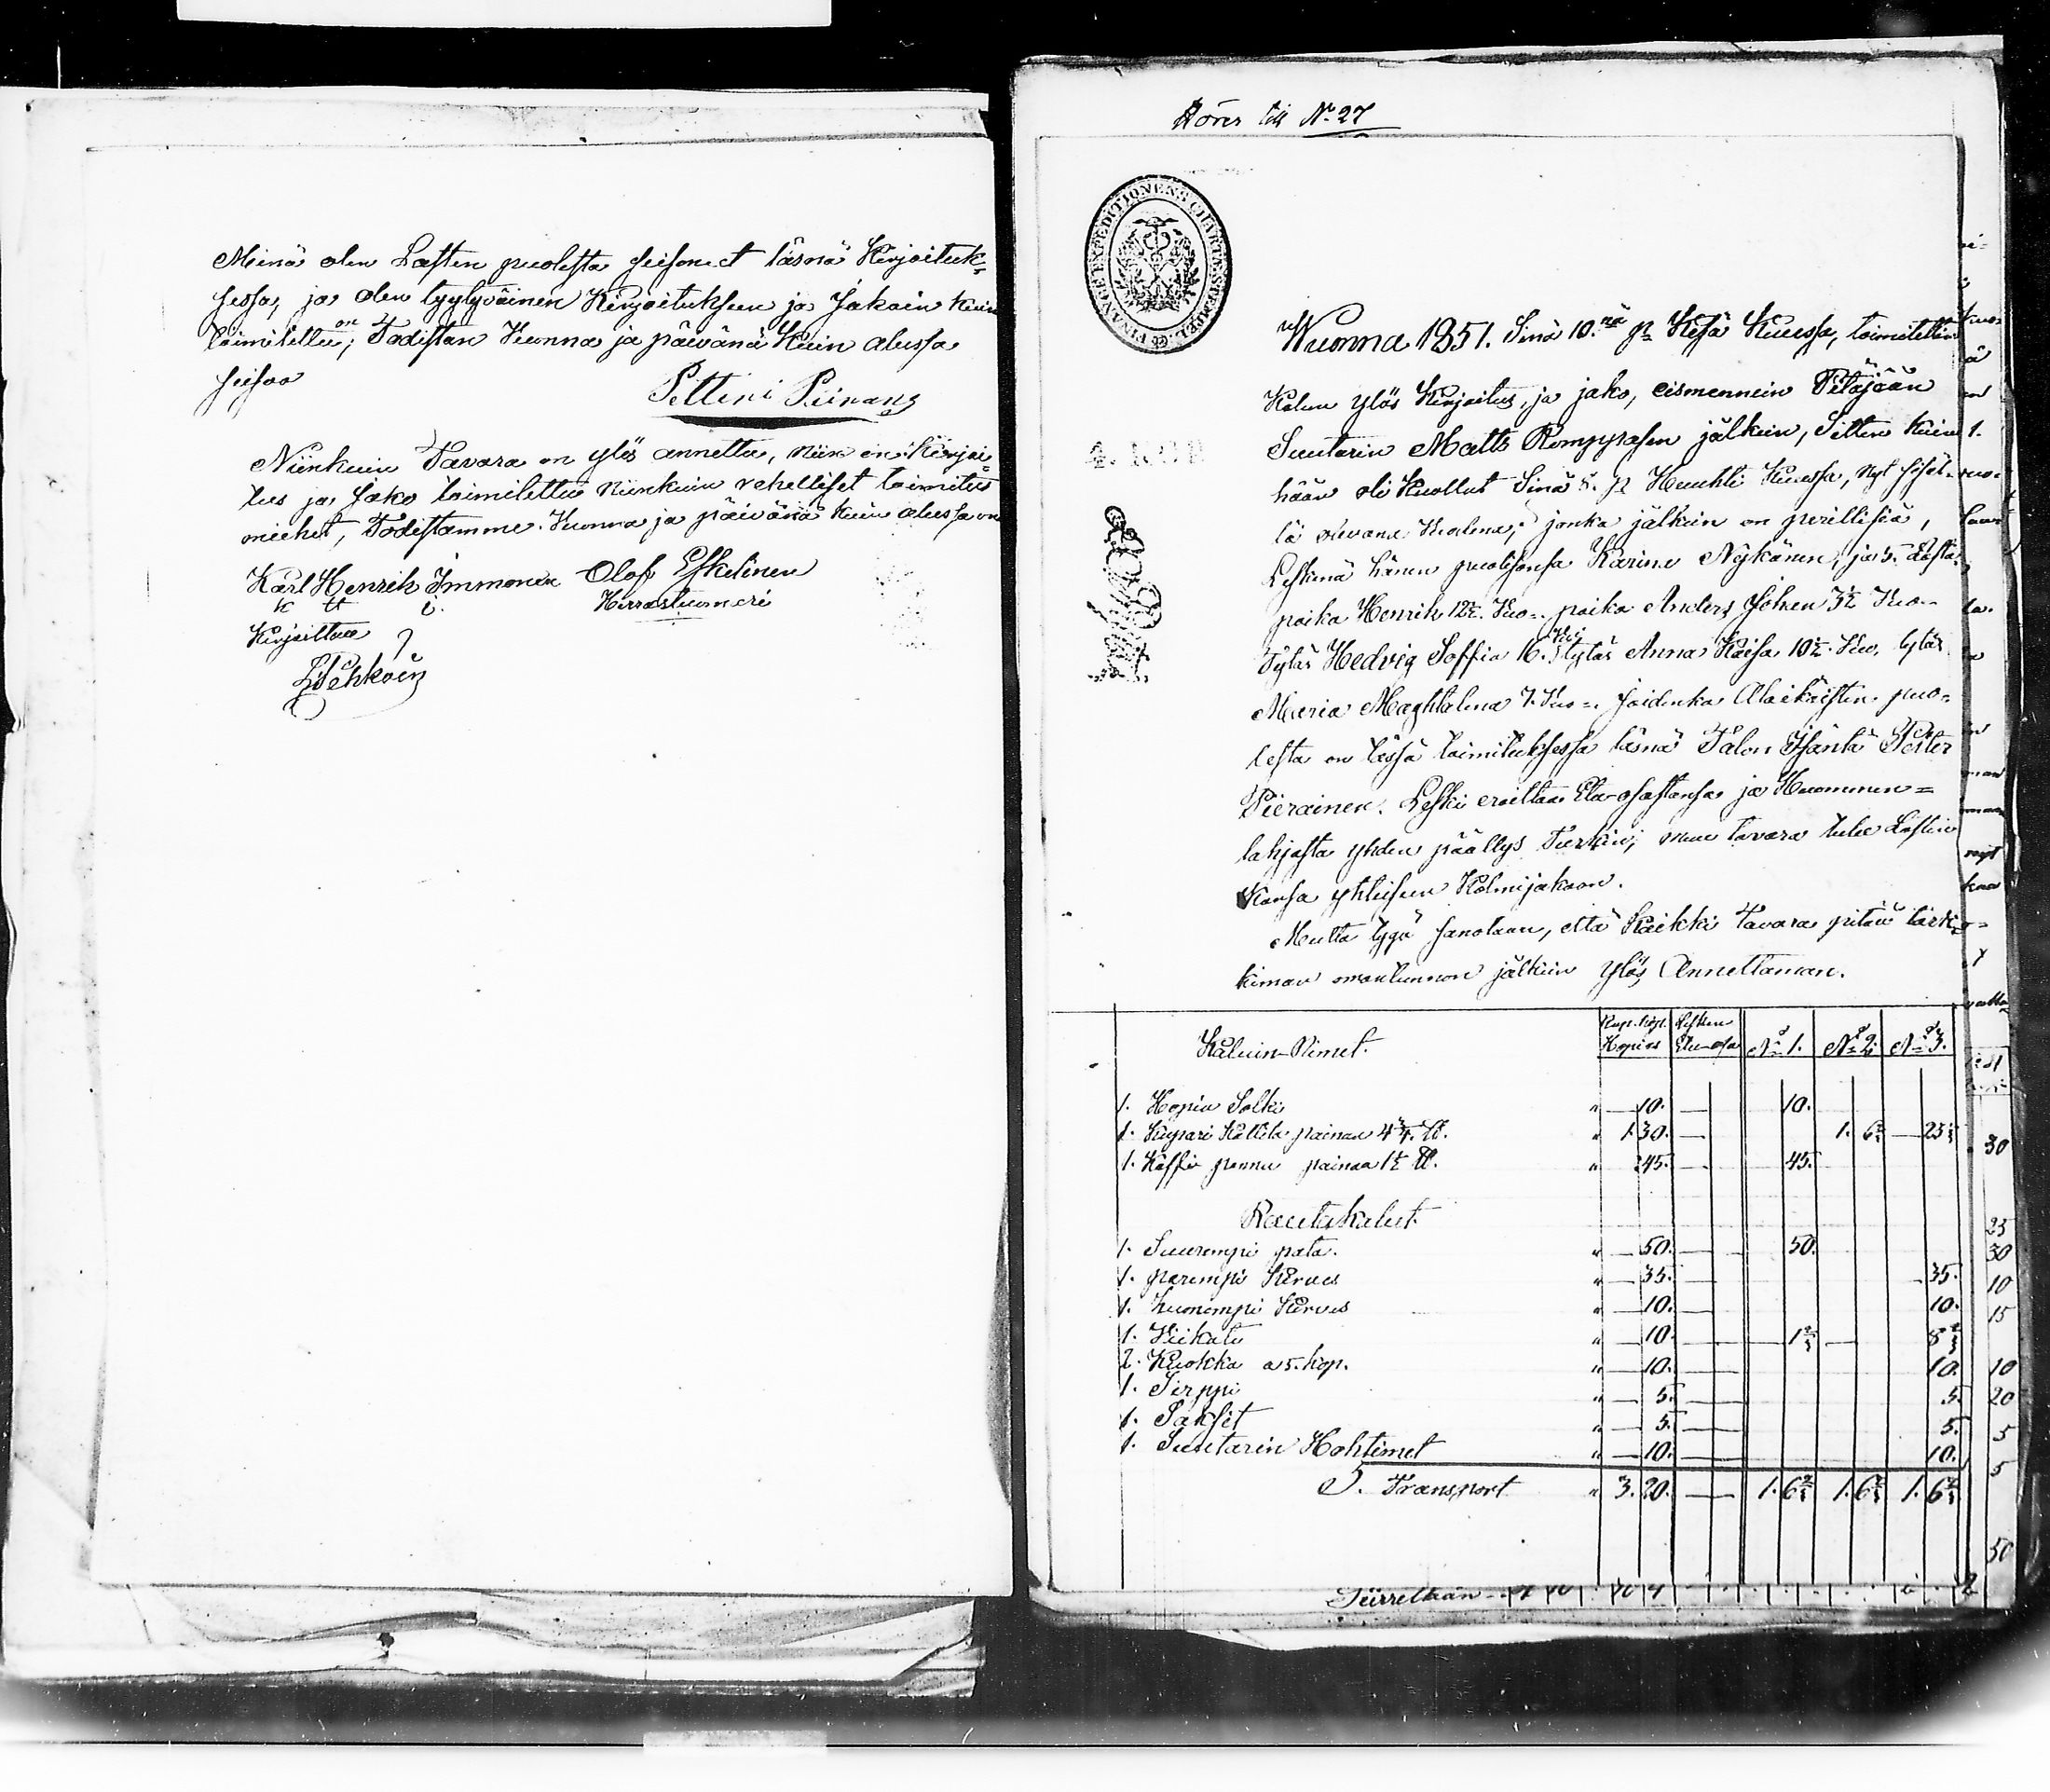 Minä olen Lasten puolesta seisonut läsnä Kirjoituk-
sessa, ja olen tyytyväinen Kirjoituksen ja Jakoin kuin
toimitettu on; Todistan Vuonna ja päivänä Kuin alussa
seisoo
Petteri Piirainen
Niinkuin Tavara on ylös annettu, niin on Kirjoi=
tus ja Jako toimitettu niinkuin rehelliset toimitus
miehet, Todistamme. Vuonna ja päivänä kuin alussa on
Karl Henrik Immonen Olof Eskelinen
Herrastuomari
Kirjoittaa
Hörer till No 27
FINANCE EXPEDITIONENS CHARTÆ STEMPEL
Wuonna 1851. Sinä 10.nä p. Kesä Kuussa, toimitettin
Kalun ylös Kirjoitus, ja jako, eismennein Pitäjään
Suutarin Matts Romppasen jälkein, Sitten kuin
hään oli Kuollut Sinä 8. p. Huuhti Kuussa, nyt sisäl-
lä olevana Vuolena; jonka jälkein on perillisiä,
Leskenä hänen puolisonsa Karina Nykänen, ja 5. Lasta,
poika Henrik 12½. Vuo=. poika Anders Johan 3½ Vuo-
Tytär Hedvig Soffia 16. Vuo tytär Anna Kaisa 10½. Vuo. tytär
Maria Maghlalena 7. Vuo=. joidenka Alaikäisten puo=
lesta on tässä toimituksessa läsnä Talon Isäntä Petter
Piirainen. Leski eroittaa Etu-osastansa ja Huommen=
lahjasta yhden päällys Turkin; muu tavara tulee Lastein
Kansa yhteiseen Kolmijakoon.
Mutta työä sanotaan, että Kaikki Tavara pitää tarki
kiman omantunnon jälkiin ylös Annettaman.
Kaluin-Nimet. Rup. kop. Hopias Lesken Etu-osa No 1. No 2. No 3.
1. Hopia Solki " — 10. — 10.
1. Kupari Kattila painaa 4¾. ℔. " 1. 30. — 1. 6⅔ — 23⅓
1. Kaffe pannu painaa 1½ ℔. " 45. — 45.
Rautakalut.
1. Suurempi pata. " — 50. — 50.
1. parempi Kirves " — 35. — 35.
1. huonompi Kirves " — 10. — 10.
1. Viikate " — 10. — 1⅔ — 8⅓
2. Kuokka a 5. kop. " — 10. — 10.
1. Sirppi " — 5. — 5.
1. Sakset " — 5. — 5.
1. Suutarin Hohtimet " — 10. — 10.
S. Transport " 3. 20. — 1. 6⅔ 1. 6⅔ 1. 6⅔
Siirretään